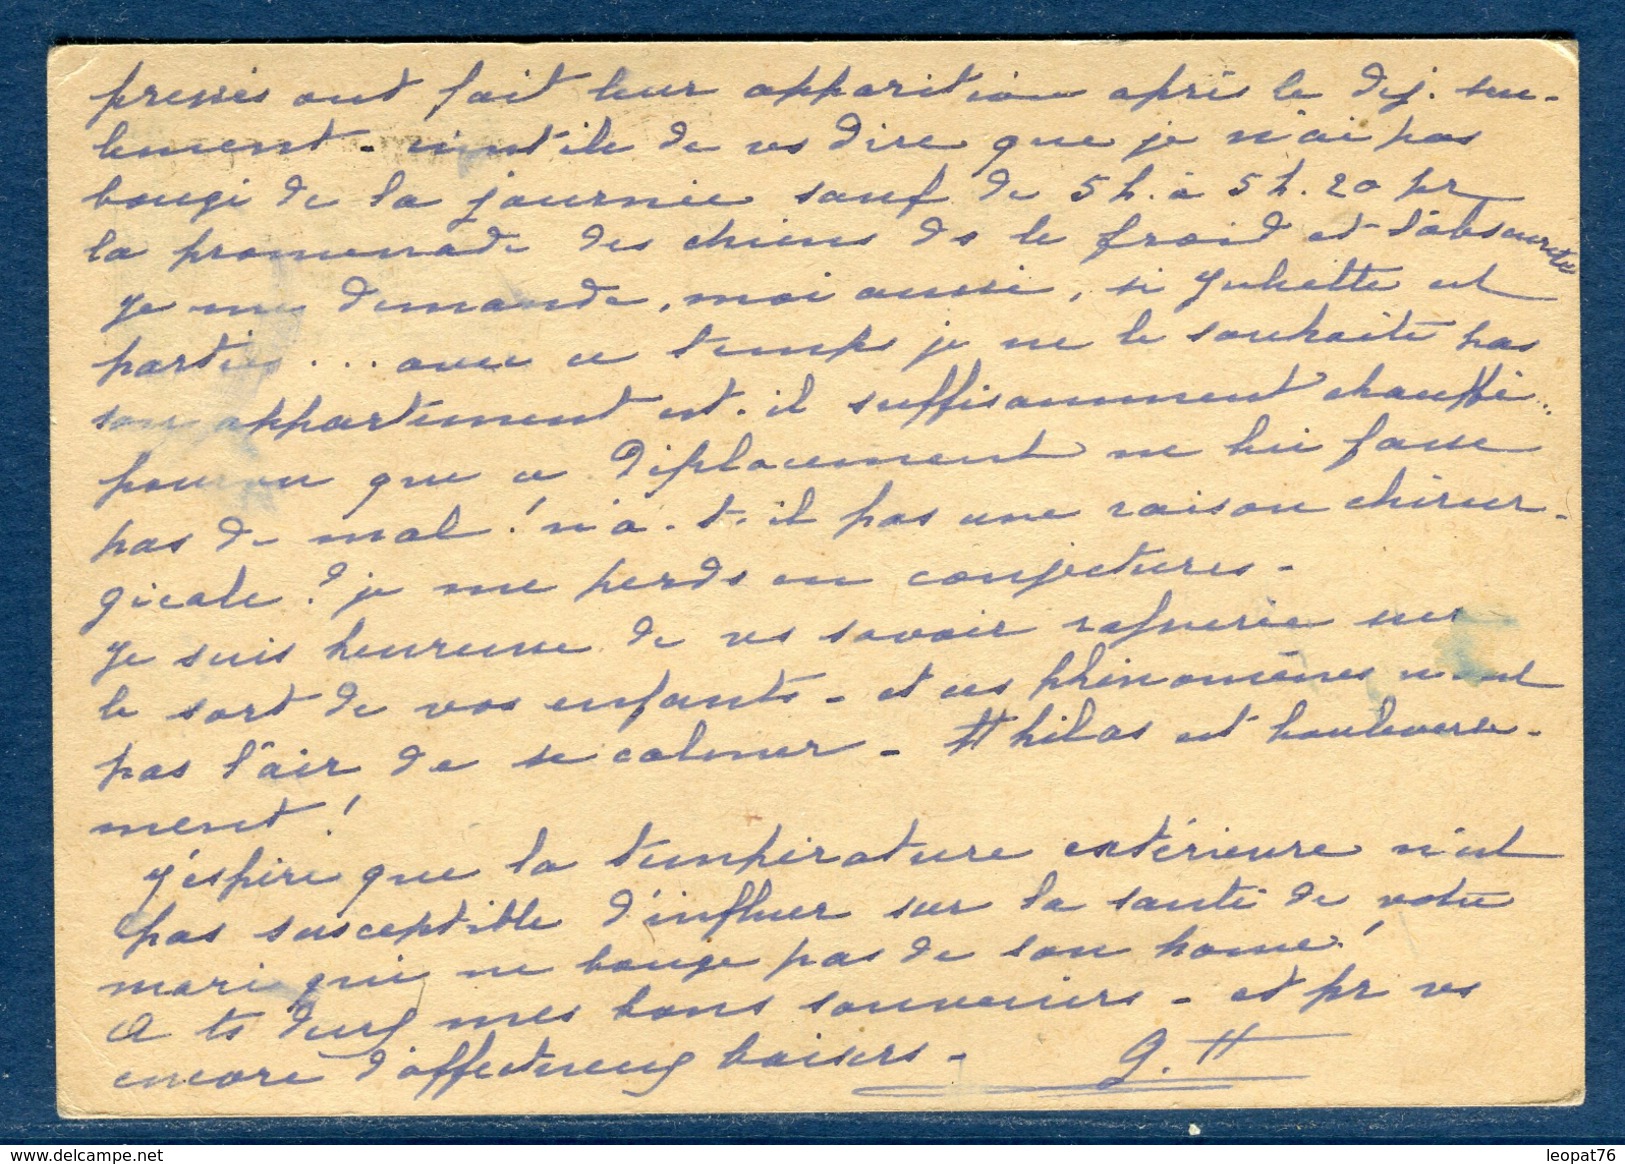 pressés ont fait leur apparition après le déj. seu-
lement - inutile de vs dire que je n'ai pas
bougé de la journée sauf de 5 h. à 5 h. 20 pr
la promenade des chiens ds le froid et l'obscurité
Je me demande, moi aussi, si Juliette est
partie... avec ce temps je ne le souhaite pas
son appartement est-il suffisamment chauffé..
pourvu que ce déplacement ne lui fasse
pas de mal ! n'a-t-il pas une raison chirur-
gicale ? je me perds en conjectures -
Je suis heureuse de vs savoir rassurée sur
le sort de vos enfants - et ces phénomènes n'ont
pas l'air de se calmer - est bouleverse-
ment !
J'espère que la température extérieure n'est
pas susceptible d'influer sur la santé de votre
mari qui ne bouge pas de son home !
A ts deux mes bons souvenirs - et pr vs
encore d'affectueux baisers -
G. H
leopat76
delcampe.net